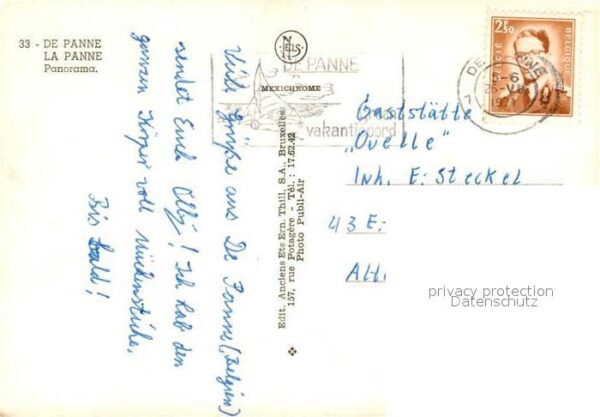 33 - DE PANNE
LA PANNE
Panorama.
NELS
MEXICHROME
Edit. Anciens Ets Ern. Thill, S.A., Bruxelles
157, rue Potagère - Tél.: 17.62.42
Photo Publi-Air
DE PANNE
vakantieoord
2F50
BELGIQUE
BELGIË
DE PANNE
5-6
Viele Grüße aus De Panne (Belgien)
sendet Euch Olly! Ich hab den
ganzen Körper voll Mückenstiche.
Bis bald!
Gaststätte
„Quelle"
Inh. E. Steckel
43 E
Alt
privacy protection
Datenschutz